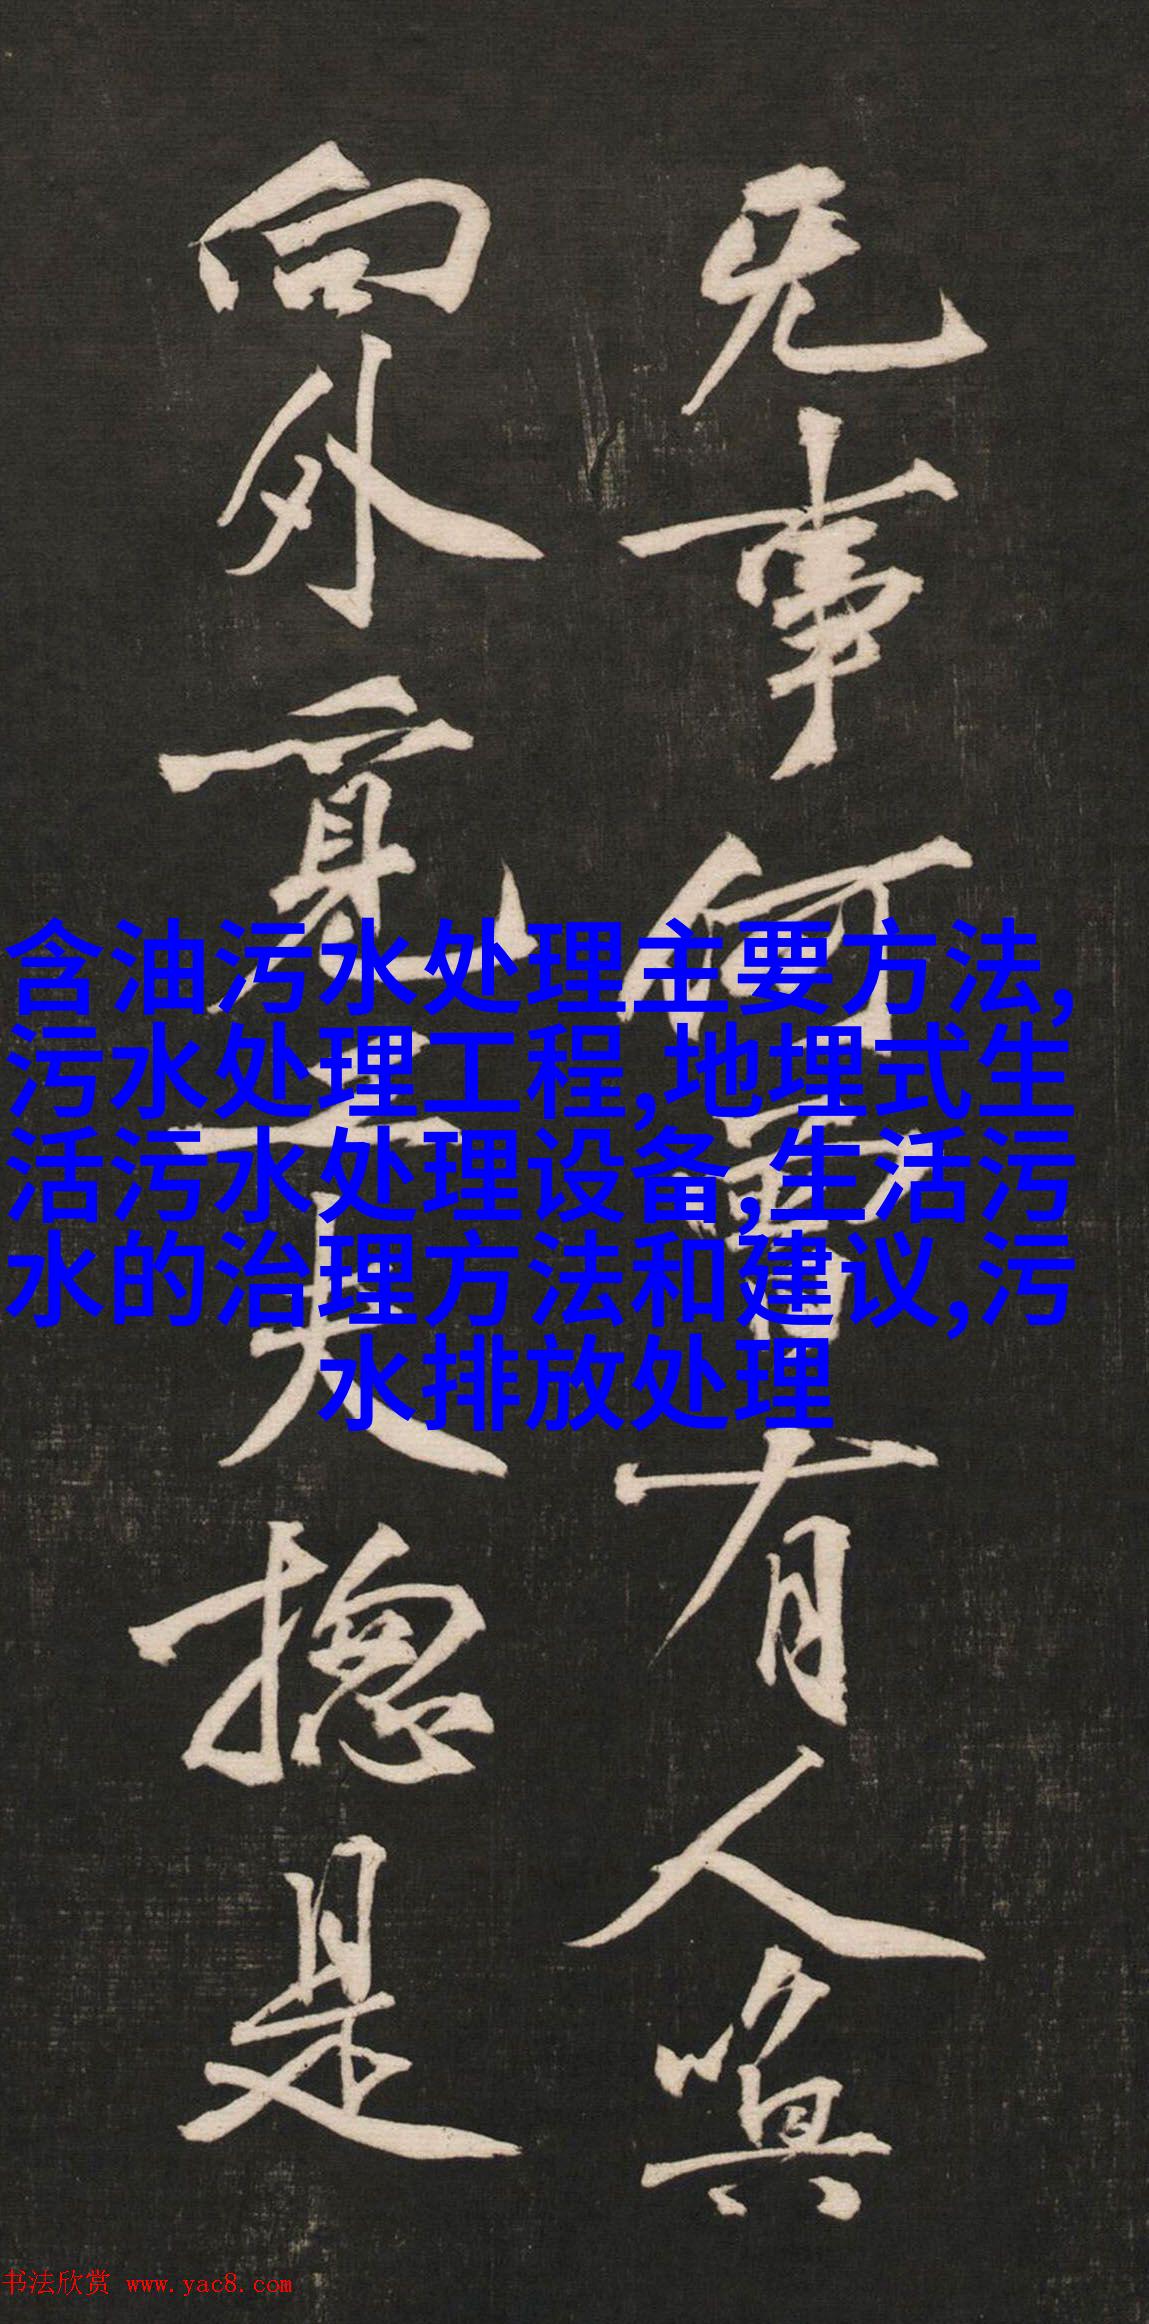 无事何有人喚
向外覓工夫捴是
含油污水处理主要方法,
污水处理工程,地埋式生
活污水处理设备,生活污
水的治理方法和建议,污
水排放处理
书法欣赏 www.yac8.com